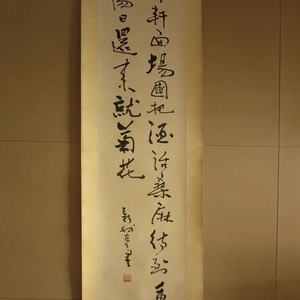 軒面場圃把酒話桑麻待到重
陽日還來就菊花